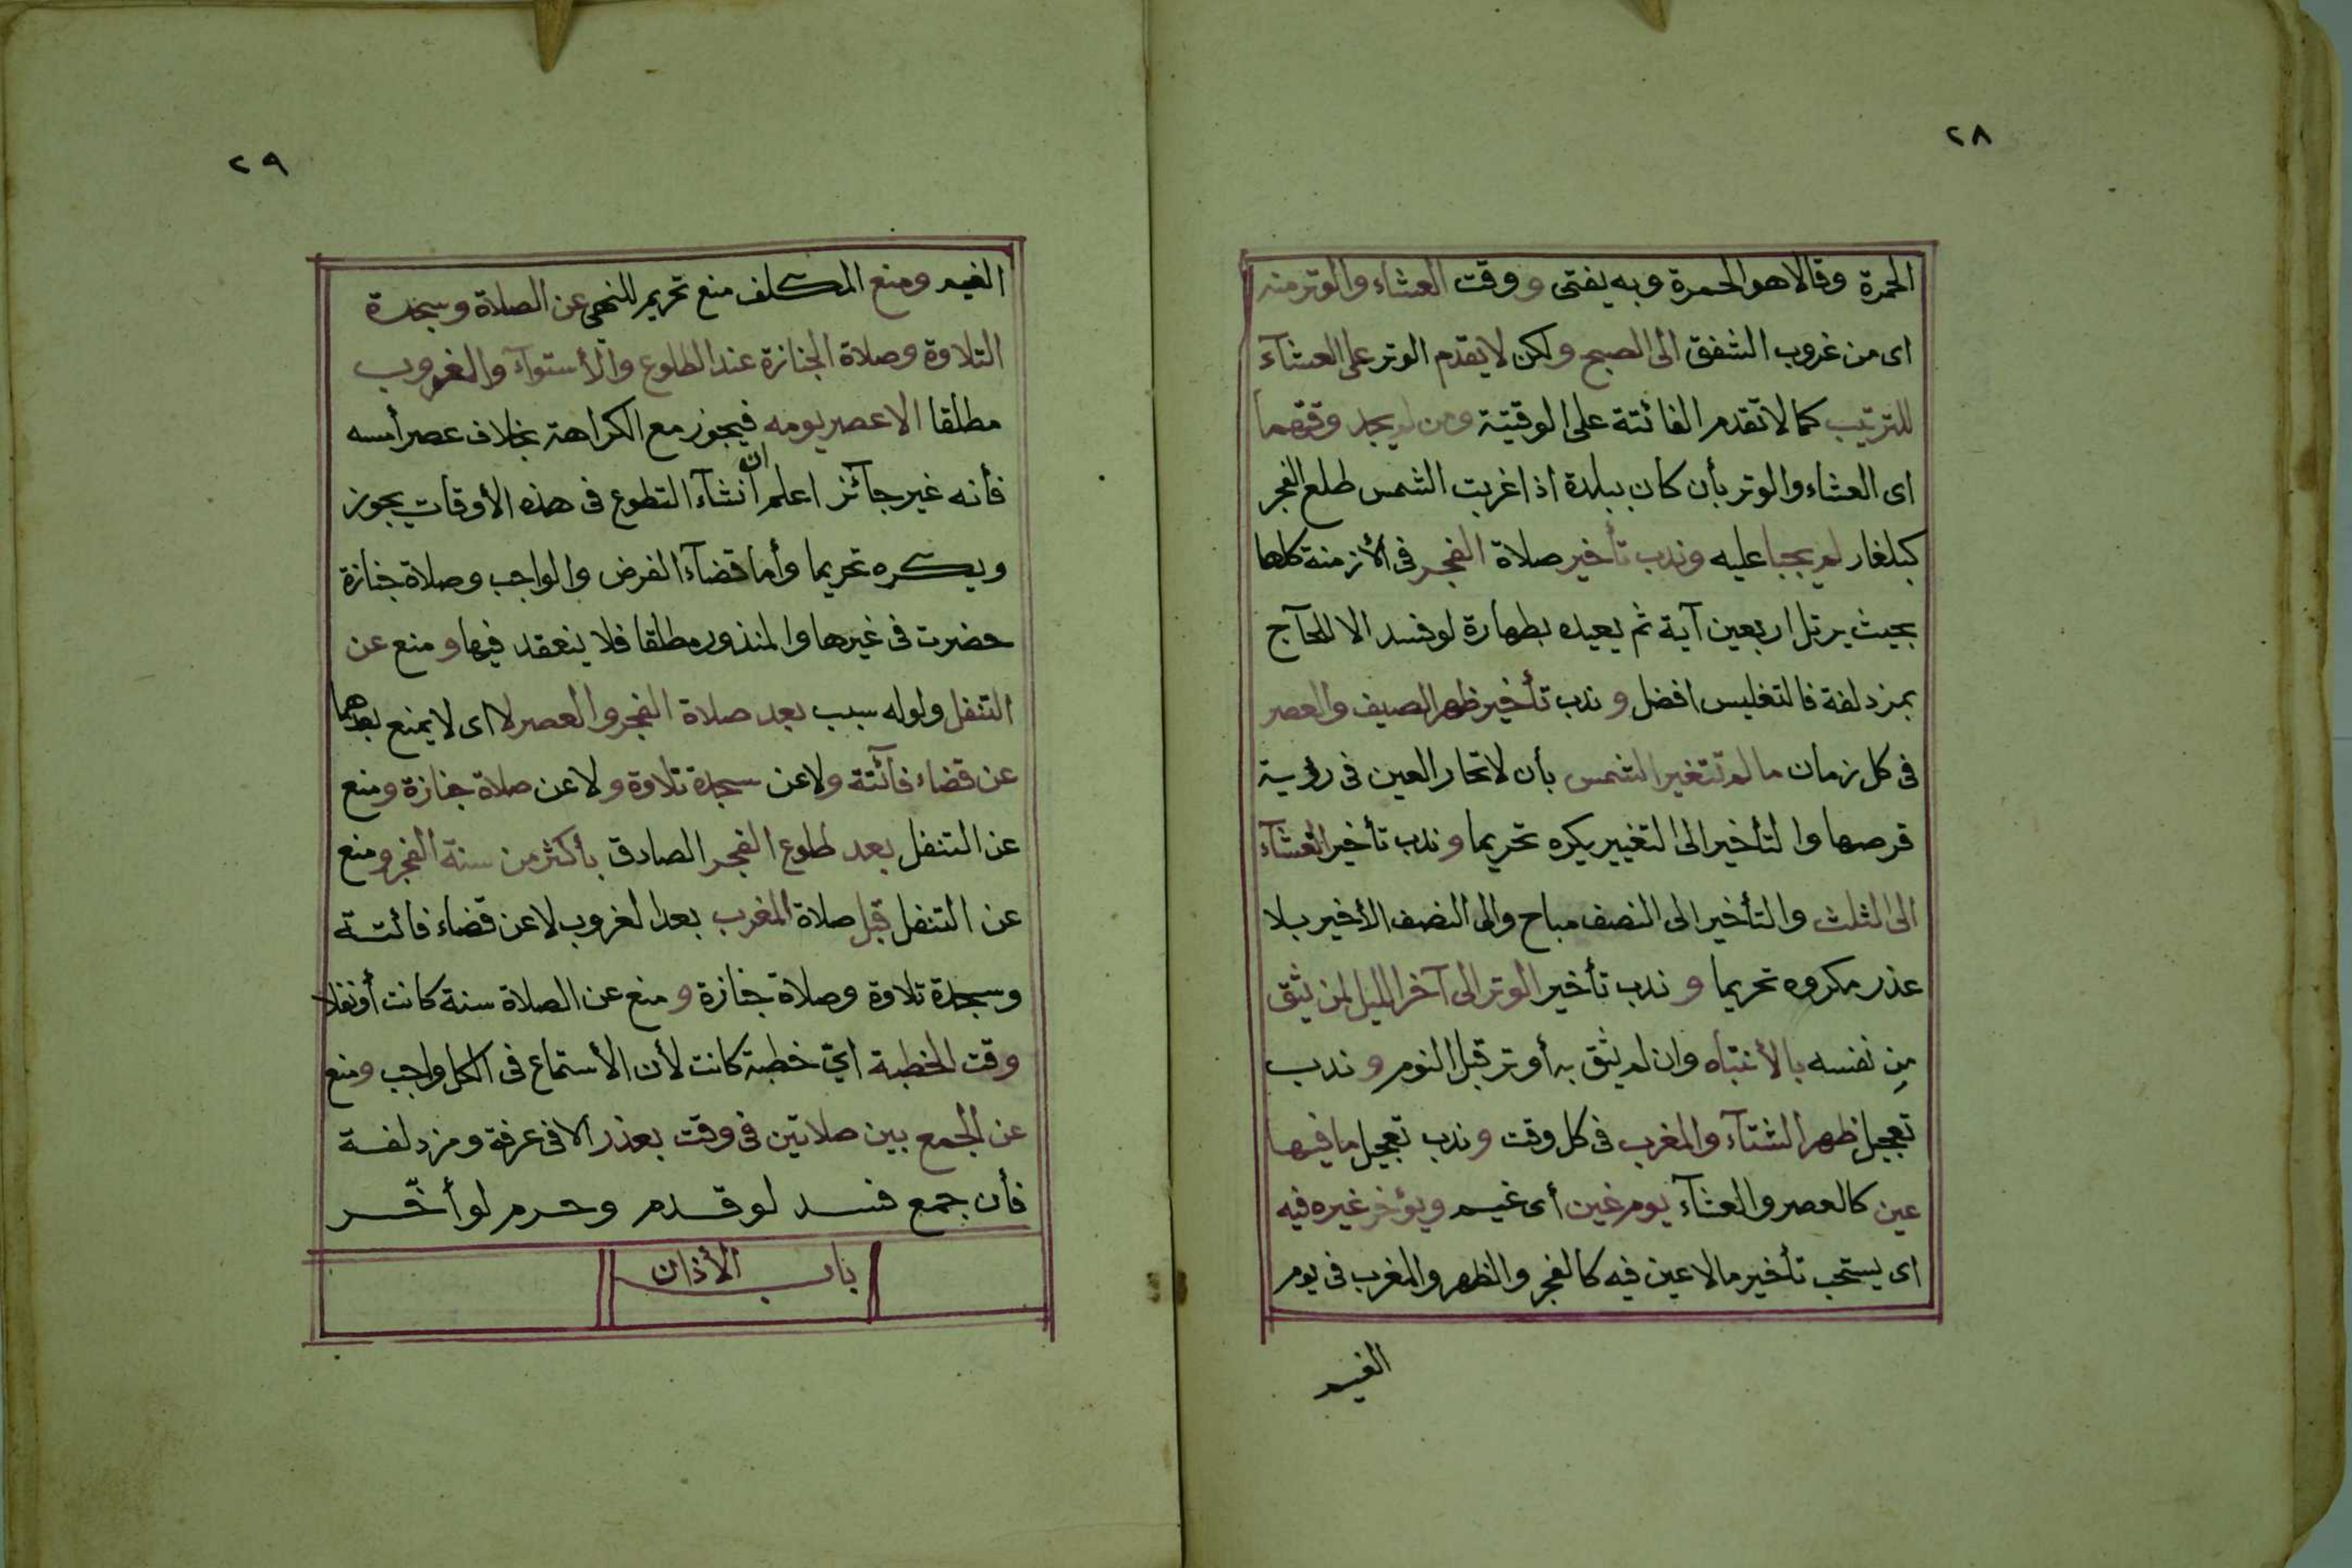 ٢٨
الحمرة وقالا هو الحمرة وبه يفتى ووقت العشاء والوتر منه
اى من غروب الشفق الى الصبح ولكن لا يقدم الوتر على العشآء
للترتيب كما لا تقدم الفائتة على الوقتية ومن لم يجد وقتهما
اى العشاء والوتر بأن كان ببلدة اذا غربت الشمس طلع الفجر
كبلغار لم يجبا عليه وندب تأخير صلاة الفجر فى الأزمنة كلها
بحيث يرتل اربعين آية ثم يعيده بطهارة لو فسد الا للحآج
بمزدلفة فالتغليس افضل وندب تأخير ظهر الصيف والعصر
فى كل زمان ما لم تتغير الشمس بأن لا تحار العين فى رؤية
قرصها والتأخير الى التغيير يكره تحريما وندب تأخير العشآء
الى الثلث والتأخير الى النصف مباح والى النصف الأخير بلا
عذر مكروه تحريما وندب تأخير الوتر الى آخر الليل لمن يثق
مِن نفسه بالأنتباه وان لم يثق به أوتر قبل النوم وندب
تعجيل ظهر الشتآء والمغرب فى كل وقت وندب تعجيل ما فيها
عين كالعصر والعشآء يوم غين أى غيم ويؤخر غيره فيه
اى يستحب تأخير ما لا عين فيه كالفجر والظهر والمغرب فى يوم
الغيم
٢٩
الغيم ومنع المكلف منع تحريم للنهى عن الصلاة وسجدة
التلاوة وصلاة الجنازة عند الطلوع والأستوآء والغروب
مطلقا الا عصر يومه فيجوز مع الكراهة بخلاف عصر أمسه
فأنه غير جآئز اعلم ان انشآء التطوع فى هذه الأوقات يجوز
ويكره تحريما وأما قضآء الفرض والواجب وصلاة جنازة
حضرت فى غيرها والمنذور مطلقا فلا ينعقد فيها ومنع عن
التنفل ولو له سبب بعد صلاة الفجر والعصر لا اى لا يمنع بعدهما
عن قضاء فآئتة ولا عن سجدة تلاوة ولا عن صلاة جنازة ومنع
عن التنفل بعد طلوع الفجر الصادق بأكثر من سنة الفجر ومنع
عن التنفل قبل صلاة المغرب بعد الغروب لا عن قضاء فائتة
وسجدة تلاوة وصلاة جنازة ومنع عن الصلاة سنة كانت أو نفلا
وقت الخطبة اىّ خطبة كانت لأن الأستماع فى الكل واجب ومنع
عن الجمع بين صلاتين فى وقت بعذر الا فى عرفة ومزدلفة
فأن جمع فسد لو قدم وحرم لو أخّر
باب الأذان